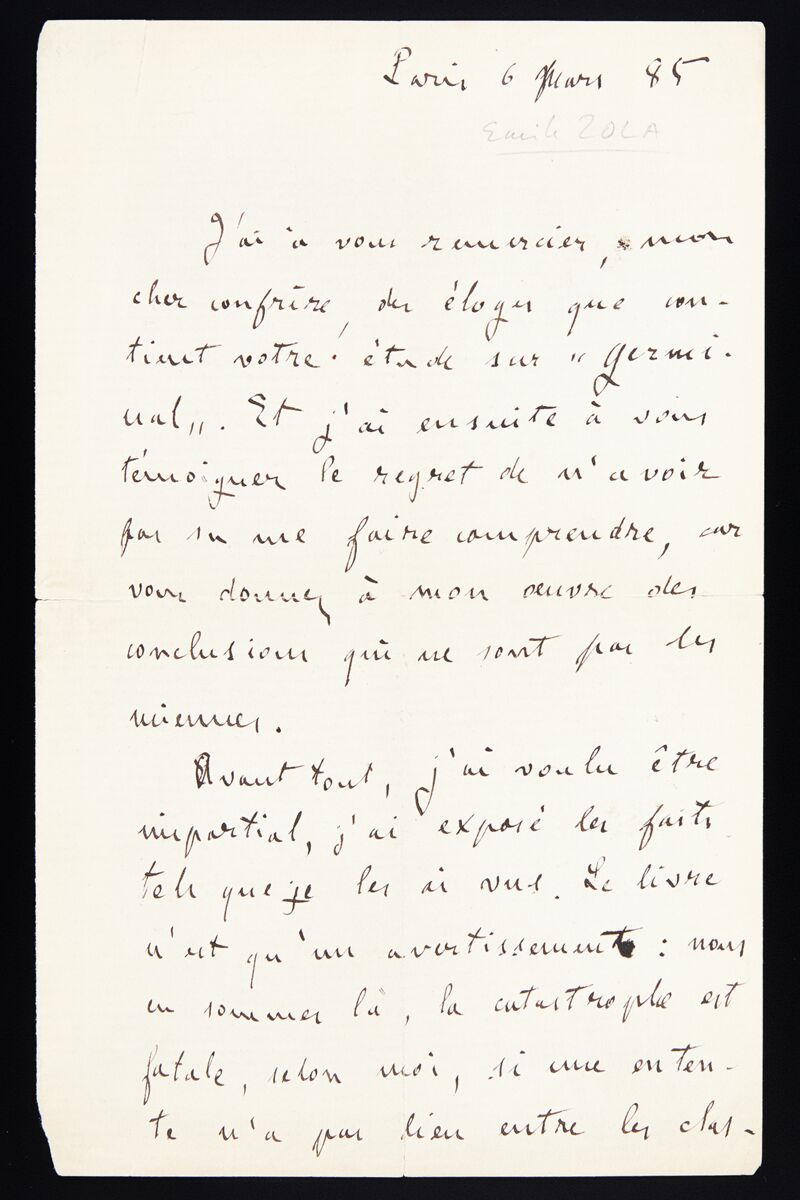 Paris 6 Mars 85
Emile ZOLA
J'ai à vous remercier, mon
cher confrère, des éloges que con-
tient votre étude sur „ Germi-
nal„. Et j'ai ensuite à vous
témoigner le regret de n'avoir
pas su me faire comprendre, car
vous donnez à mon œuvre des
conclusions qui ne sont pas les
miennes.
Avant tout, j'ai voulu être
impartial, j'ai exposé les faits
tels que je les ai vus. Le livre
n'est qu'un avertissement : nous
en sommes là, la catastrophe est
fatale, selon moi, si une enten-
te n'a pas lieu entre les clas-